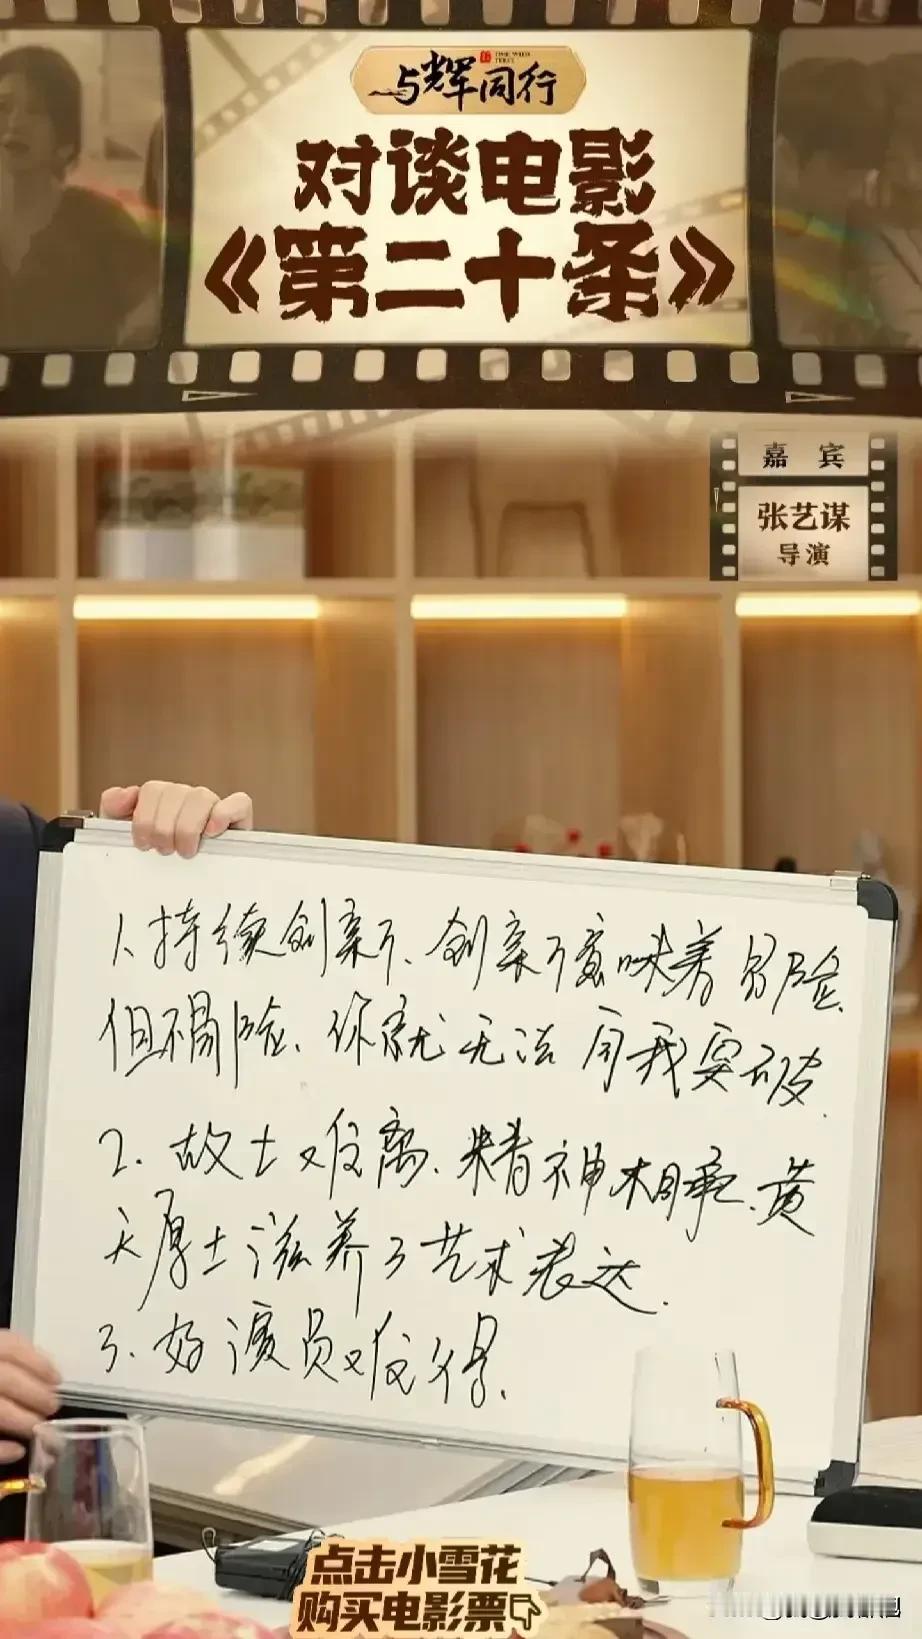 与辉同行
TIME WITH
对谈电影
《第二十条》
嘉宾
张艺谋
导演
1.持续创新、创新意味着冒险、
但不冒险、你就无法自我突破.
2.故土难离.精神相承.黄
天厚土滋养了艺术表达.
3.好演员难得.
点击小雪花
购买电影票